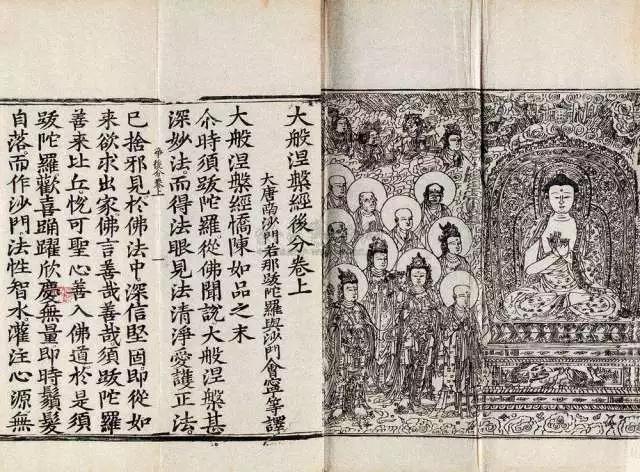 大般涅槃經後分卷上
大唐南海沙門若那跋陀羅與沙門會寧等譯
大般涅槃經憍陳如品之末
尒時須跋陀羅從佛聞說大般涅槃甚
深妙法而得法眼見法清淨愛護正法
已捨邪見於佛法中深信堅固即從如
來欲求出家佛言善哉善哉須跋陀羅
善來比丘悅可聖心善入佛道於是須
跋陀羅歡喜踊躍欣慶無量即時鬚髮
自落而作沙門法性智水灌注心源無